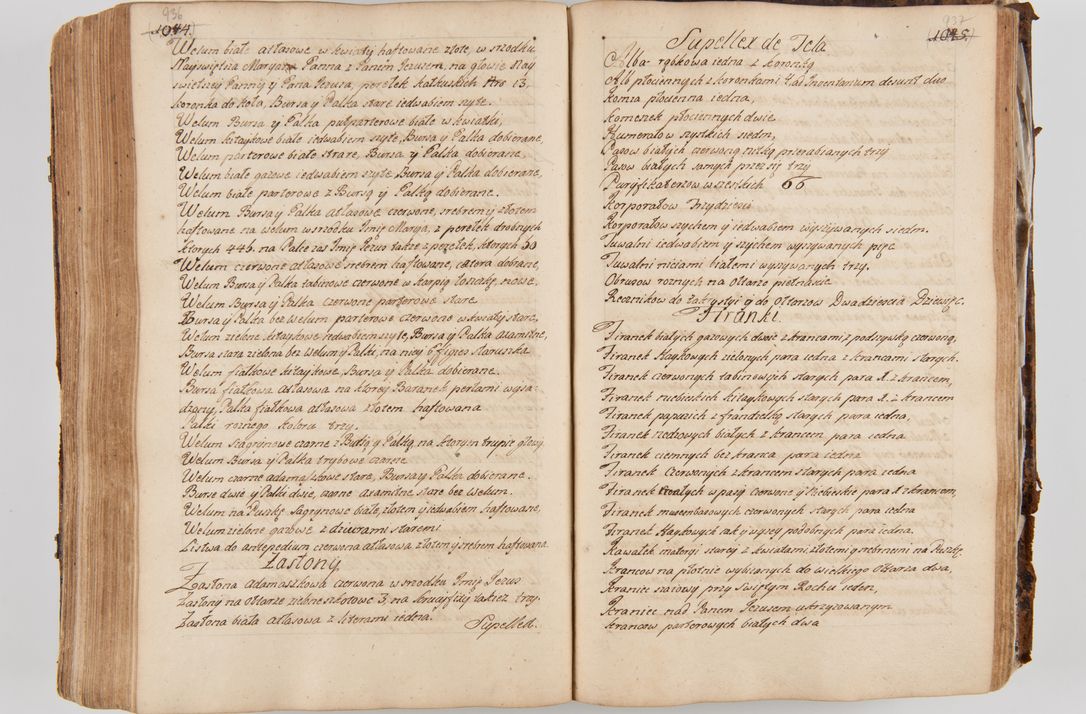 936
1044.
Welum białe atłasowe w kwiaty haftowane złote, w srzodku
Nayswiętsza Marya Panna z Panem Jezusem, na głowie Nay
swiętszey Panny y Pana Jezusa, perełek kałkuskich Nro 13,
koronka do koła, Bursa y Palka stare iedwabiem szyte.
Welum Bursa y Palka pułparterowe białe w kwiatki,
Welum kitaykowe białe iedwabiem szyte, Bursa y Palka dobierane,
Welum parterowe białe stare, Bursa y Palka dobierane,
Welum białe gazowe iedwabiem szyte Bursa y Palka dobierane,
Welum białe parterowe z Bursą y Palką dobierane.
Welum Bursa y Palka atłasowe czerwone, srebrem y złotem
haftowane na welum w srzodku Imię Marya, z perełek drobnych
ktorych 446. na Palce zaś Imię Jezus także z perełek, ktorych 60
Welum czerwone atłasowe srebrem haftowane, cztera dobrane,
Welum Bursa y Palka tabinowe czerwone w karpią łuskę, nowe.
Welum Bursa y Palka czerwone parterowe stare
Bursa y Palka bez welum parterowe czerwono w kwiaty stare,
Welum zielone kitaykowe iedwabiem szyte, Bursa y Palka axamitne,
Bursa stara zielona bez welum y Palki, na niey effigies staruszka
Welum fiałkowe kitaykowe, Bursa y Palka dobierane.
Bursa fiałkowa atłasowa na ktorey Baranek perłami wysa-
dzany, Palka fiałkowa atłasowa złotem haftowana
Palki roznego koloru trzy.
Welum Szagrynowe czarne z Bursą y Palką, na ktorym trupie głowy.
Welum Bursa y Palka trybowe czarne
Welum czarne adamaszkowe stare, Bursa y Palka dobierane.
Bursa dwie y Palki dwie, czarne axamitne stare bez welum.
Welum na Puszkę Sagrynowe białe, złotem y iedwabiem haftowane,
Welum zielone gazowe z dziurami staremi
Listwa do antepedium czerwona atłasowa złotem y srebrem haftowana
Zasłony,
Zasłona adamaszkowa czerwona w srzodku Imię Jezus
Zasłony na ołtarze zielone szkotowe 3, na krucyfixy także trzy.
Zasłona biała atłasowa z literami iedna.
Supellex.
937
1045.
Supellex de Tela
Alba rąbkowa iedna z koronką
Alb płociennych z koronkami 4 ad Inventarium desunt duo
Komża płocienna iedna,
Komeżek płociennych dwie
Humerałow wszystkich siedm,
Pasow białych czerwoną nitką przerabianych trzy
Pasow białych samych przez się trzy
Puryfikaterzow wszelkich 66
Korporałow Trzydzieści
Korporałow szychem y iedwabiem wyszywanych siedm.
Tuwalni iedwabiem y szychem wyszywanych pięć
Tuwalni niciami białemi wyszywanych trzy.
Obrusow roznych na ołtarze piętnaście
Ręcznikow do zakrystyi y do ołtarzow Dwadzieścia Dziewięć.
Firanki.
Firanek białych gazowych dwie z krancami z podszywką czerwoną,
Firanek kitaykowych zielonych para iedna z krancami starych.
Firanek czerwonych tabinowych starych para 1. z krancem,
Firanek niebieskich kitaykowych starych para 1. z krancem
Firanek papuzich z frandzelką starych para iedna,
Firanek siedzowych białych z krancem para iedna
Firanek ciemnych bez kranca para iedna
Firanek czerwonych z krancem starych para iedna
Firanek białych w pasy czerwone y Niebieskie para 1 z krancem,
Firanek muzembazowych czerwonych starych para iedna
Firanek kitaykowych iak y wyzey podobnych para iedna.
Kawałek materyi starey z kwiatami złotemi y srebrnemi na Puszkę,
Krancow na płotnie wybijanych do wielkiego ołtarza dwa,
Kraniec siatowy przy Swiętym Rochu ieden,
Kraniec nad Panem Jezusem ukrzyzowanym
Krancow parterowych białych dwa